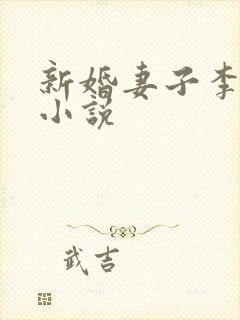 新婚妻子李
小説
武吉